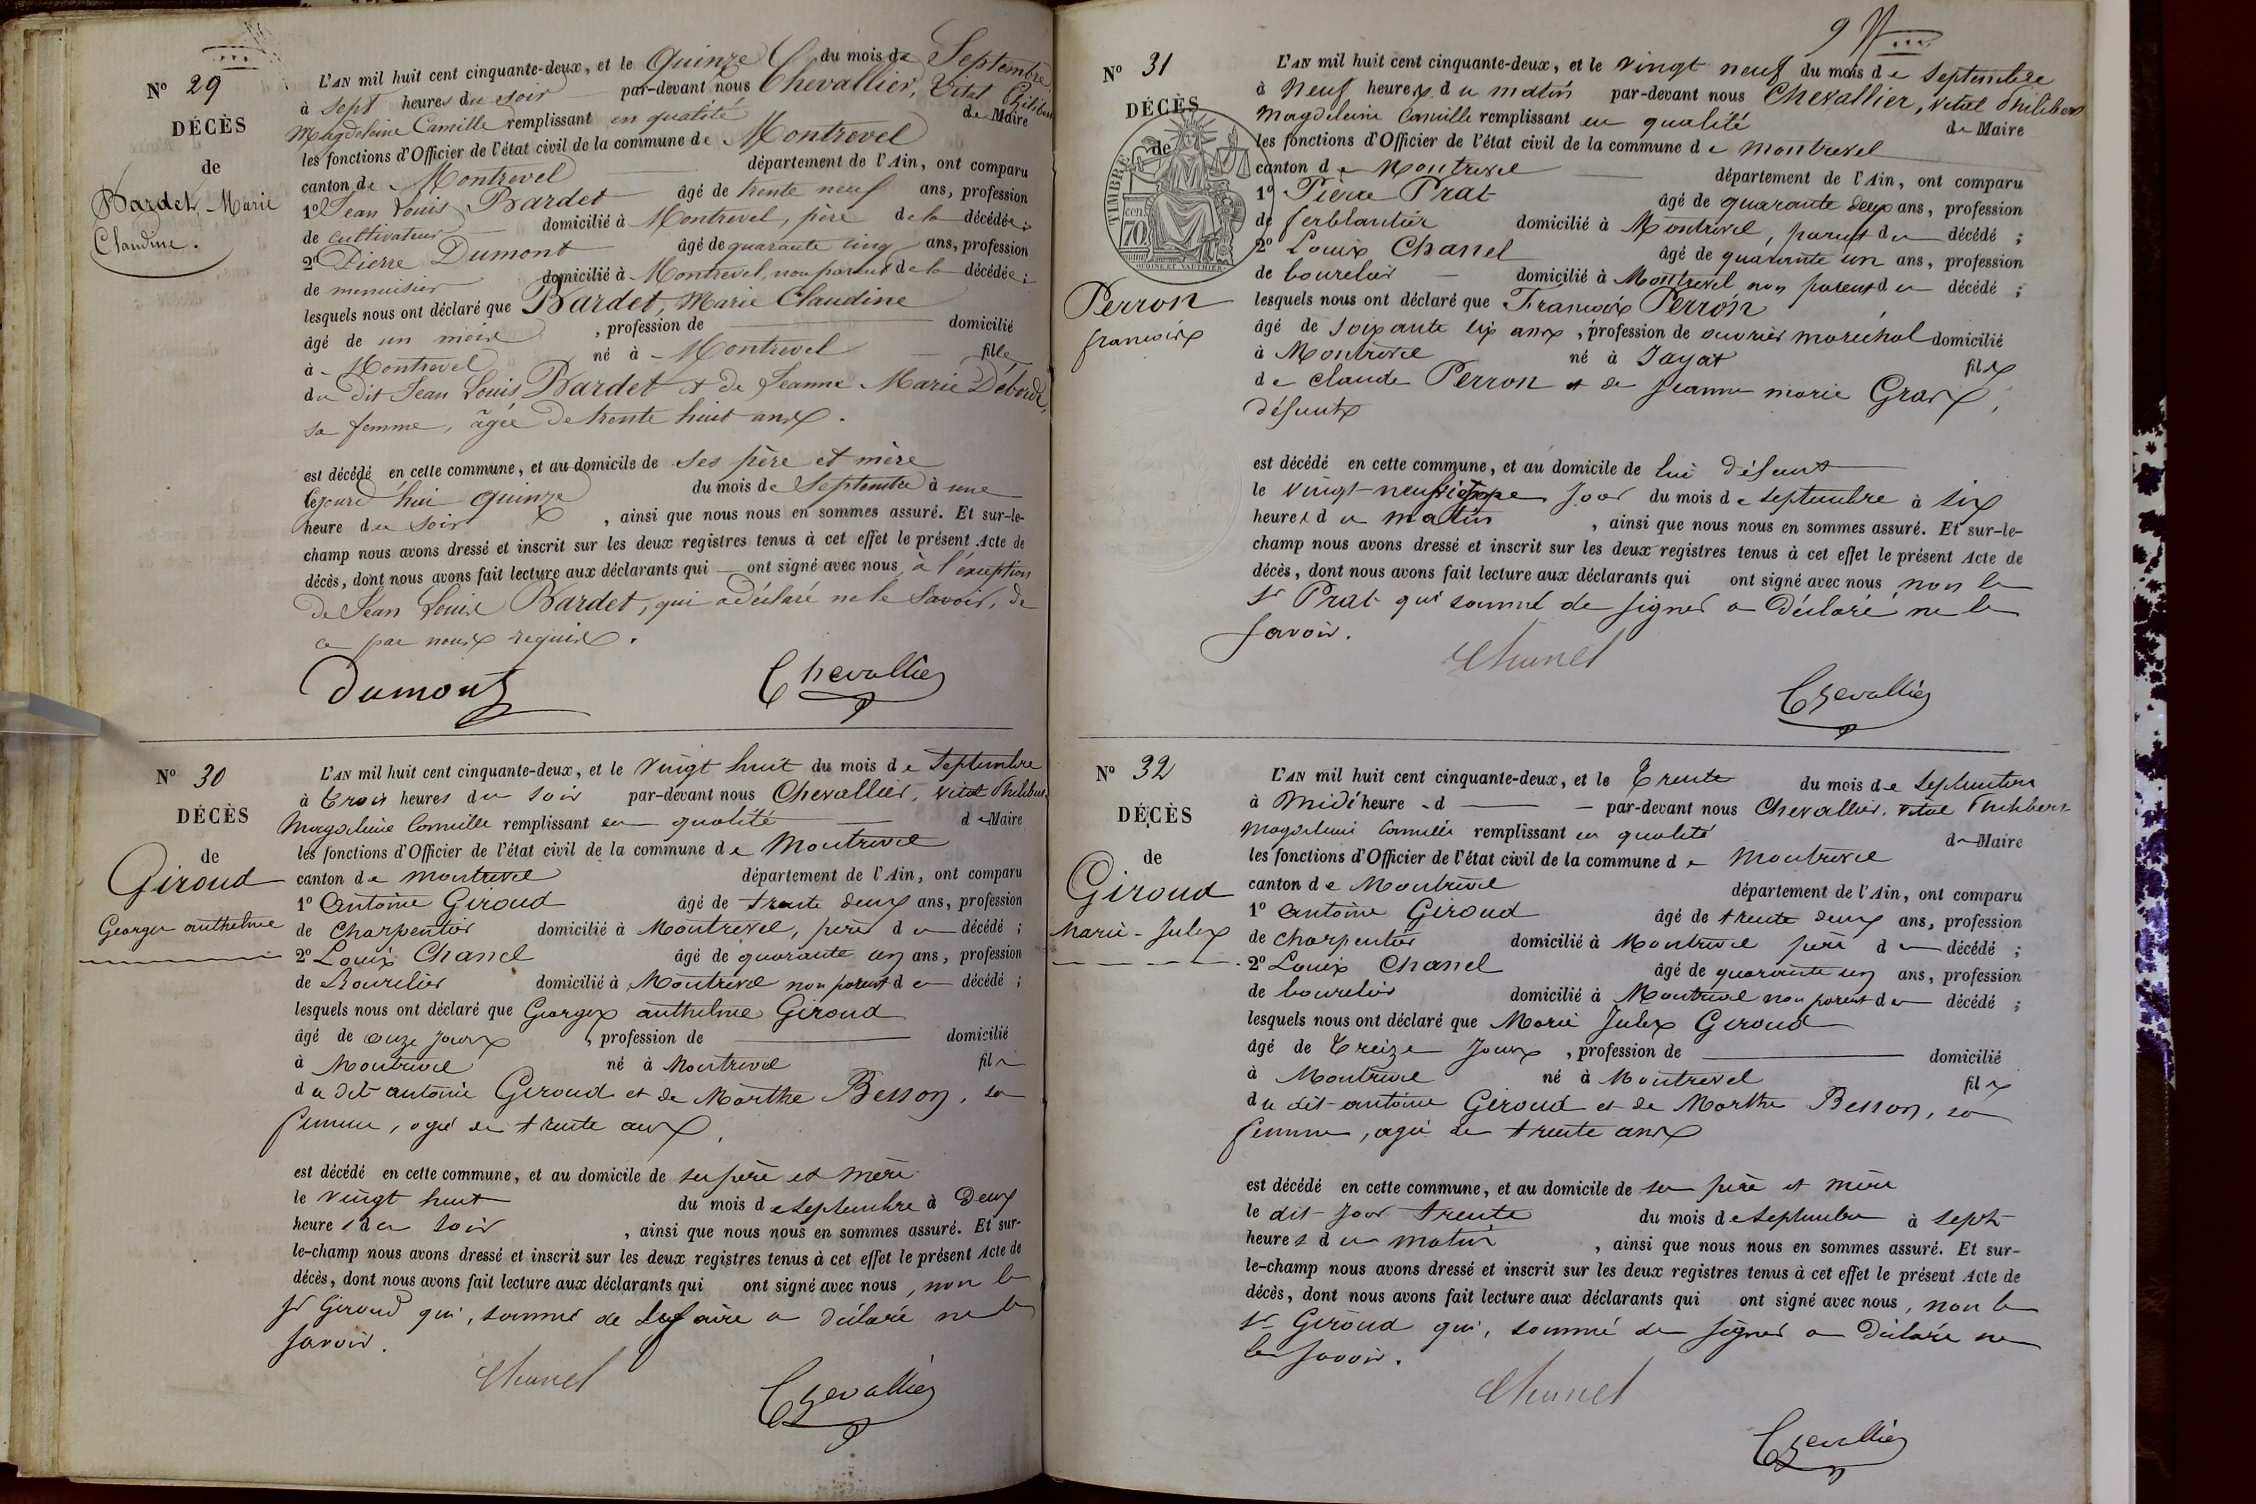 N° 29
DÉCÈS
de
Bardet, Marie
Claudine.
L'AN mil huit cent cinquante-deux, et le Quinze du mois de Septembre
à sept heures du soir par-devant nous Chevallier, Vital Philibert
Magdeleine Camille remplissant en qualité de Maire
les fonctions d'Officier de l'état civil de la commune de Montrevel
canton de Montrevel département de l'Ain, ont comparu
1° Jean Louis Bardet âgé de trente neuf ans, profession
de cultivateur domicilié à Montrevel, père de la décédée;
2° Pierre Dumont âgé de quarante cinq ans, profession
de menuisier domicilié à Montrevel, non parent de la décédée;
lesquels nous ont déclaré que Bardet, Marie Claudine
âgé de un mois, profession de domicilié
à Montrevel né à Montrevel fille
du dit Jean Louis Bardet et de Jeanne Marie
sa femme, âgée de trente huit ans.
est décédé en cette commune, et au domicile de ses père et mère
cejourd'hui quinze du mois de Septembre à une
heure du soir, ainsi que nous nous en sommes assuré. Et sur-le-
champ nous avons dressé et inscrit sur les deux registres tenus à cet effet le présent Acte de
décès, dont nous avons fait lecture aux déclarants qui ont signé avec nous, à l'exception
de Jean Louis Bardet, qui a déclaré ne le savoir, de
ce par nous requis.
Dumont Chevallier
N° 30
DÉCÈS
de
Giroud
Georges anthelme
L'AN mil huit cent cinquante-deux, et le vingt huit du mois de Septembre
à Trois heures du soir par-devant nous Chevallier, vital Philibert
Magdeleine Camille remplissant en qualité de Maire
les fonctions d'Officier de l'état civil de la commune de Montrevel
canton de Montrevel département de l'Ain, ont comparu
1° Antoine Giroud âgé de trente deux ans, profession
de Charpentier domicilié à Montrevel, père du décédé;
2° Louis Chanel âgé de quarante un ans, profession
de Bourelier domicilié à Montrevel non parent du décédé;
lesquels nous ont déclaré que Georges anthelme Giroud
âgé de onze jours, profession de domicilié
à Montrevel né à Montrevel fils
du dit antoine Giroud et de Marthe Besson, sa
femme, agée de trente ans.
est décédé en cette commune, et au domicile de ses père et mère
le vingt huit du mois de septembre à Deux
heures du soir, ainsi que nous nous en sommes assuré. Et sur-
le-champ nous avons dressé et inscrit sur les deux registres tenus à cet effet le présent Acte de
décès, dont nous avons fait lecture aux déclarants qui ont signé avec nous, non le
sr Giroud qui, sommé de le faire a déclaré ne le
savoir.
Chanel Chevallier
9
N° 31
DÉCÈS
de
TIMBRE
70
Perron
francois
L'AN mil huit cent cinquante-deux, et le vingt neuf du mois de septembre
à Neuf heures du matin par-devant nous Chevallier, vital Philibert
Magdeleine Camille remplissant en qualité de Maire
les fonctions d'Officier de l'état civil de la commune de Montrevel
canton de Montrevel département de l'Ain, ont comparu
1° Pierre Prat âgé de quarante deux ans, profession
de ferblantier domicilié à Montrevel, parent du décédé;
2° Louis Chanel âgé de quarante un ans, profession
de bourelier domicilié à Montrevel non parent du décédé;
lesquels nous ont déclaré que Francois Perron
âgé de soixante six ans, profession de ouvrier maréchal domicilié
à Montrevel né à Jayat fils
de Claude Perron et de Jeanne marie Gras,
défunts
est décédé en cette commune, et au domicile de lui défunt
le vingt-neuvième jour du mois de septembre à six
heures du matin, ainsi que nous nous en sommes assuré. Et sur-le-
champ nous avons dressé et inscrit sur les deux registres tenus à cet effet le présent Acte de
décès, dont nous avons fait lecture aux déclarants qui ont signé avec nous, non le
sr Prat qui sommé de signer a déclaré ne le
savoir.
Chanel
Chevallier
N° 32
DÉCÈS
de
Giroud
Marie-Jules
L'AN mil huit cent cinquante-deux, et le Trente du mois de Septembre
à Midi heure d par-devant nous Chevallier, vital Philibert
Magdeleine Camille remplissant en qualité de Maire
les fonctions d'Officier de l'état civil de la commune de Montrevel
canton de Montrevel département de l'Ain, ont comparu
1° antoine Giroud âgé de trente deux ans, profession
de charpentier domicilié à Montrevel père du décédé;
2° Louis Chanel âgé de quarante un ans, profession
de bourelier domicilié à Montrevel non parent du décédé;
lesquels nous ont déclaré que Marie Jules Giroud
âgé de Treize Jours, profession de domicilié
à Montrevel né à Montrevel fils
du dit antoine Giroud et de Marthe Besson, sa
femme, agée de trente ans
est décédé en cette commune, et au domicile de ses père et mère
le dit jour trente du mois de septembre à sept
heures du matin, ainsi que nous nous en sommes assuré. Et sur-
le-champ nous avons dressé et inscrit sur les deux registres tenus à cet effet le présent Acte de
décès, dont nous avons fait lecture aux déclarants qui ont signé avec nous, non le
sr Giroud qui, sommé de signer a déclaré ne
le savoir.
Chanel
Chevallier